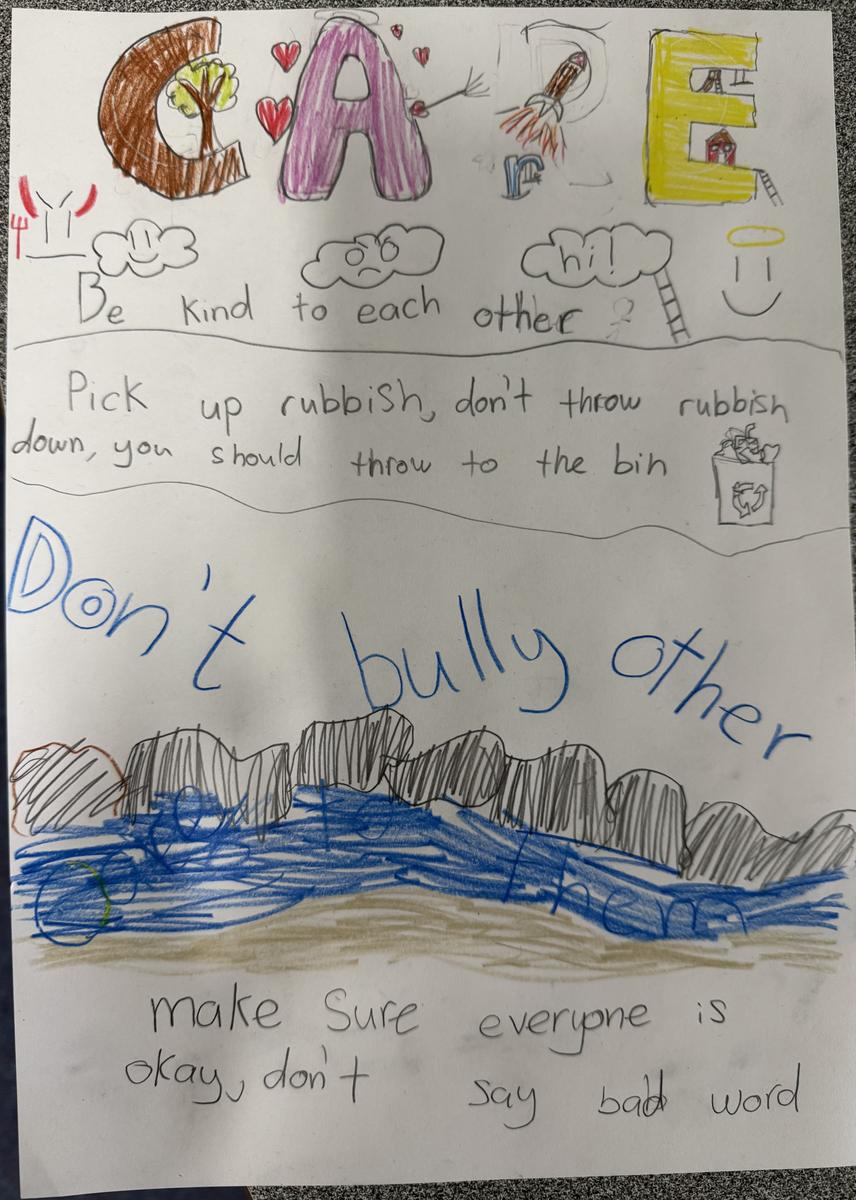 CArE
hi!
Be kind to each other
Pick up rubbish, don't throw rubbish
down, you should throw to the bin
Don't bully other
to Them
make Sure everyone is
okay, don't say bad word